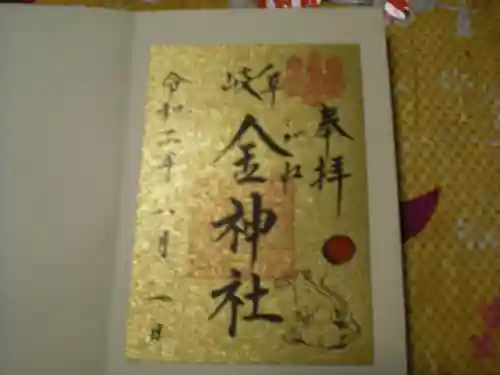 奉拝
岐阜
金神社
令和二年八月一日